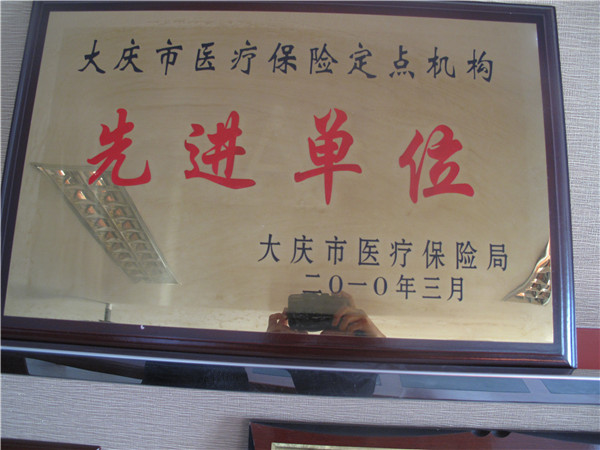 大庆市医疗保险定点机构
先进单位
大庆市医疗保险局
二〇一〇年三月